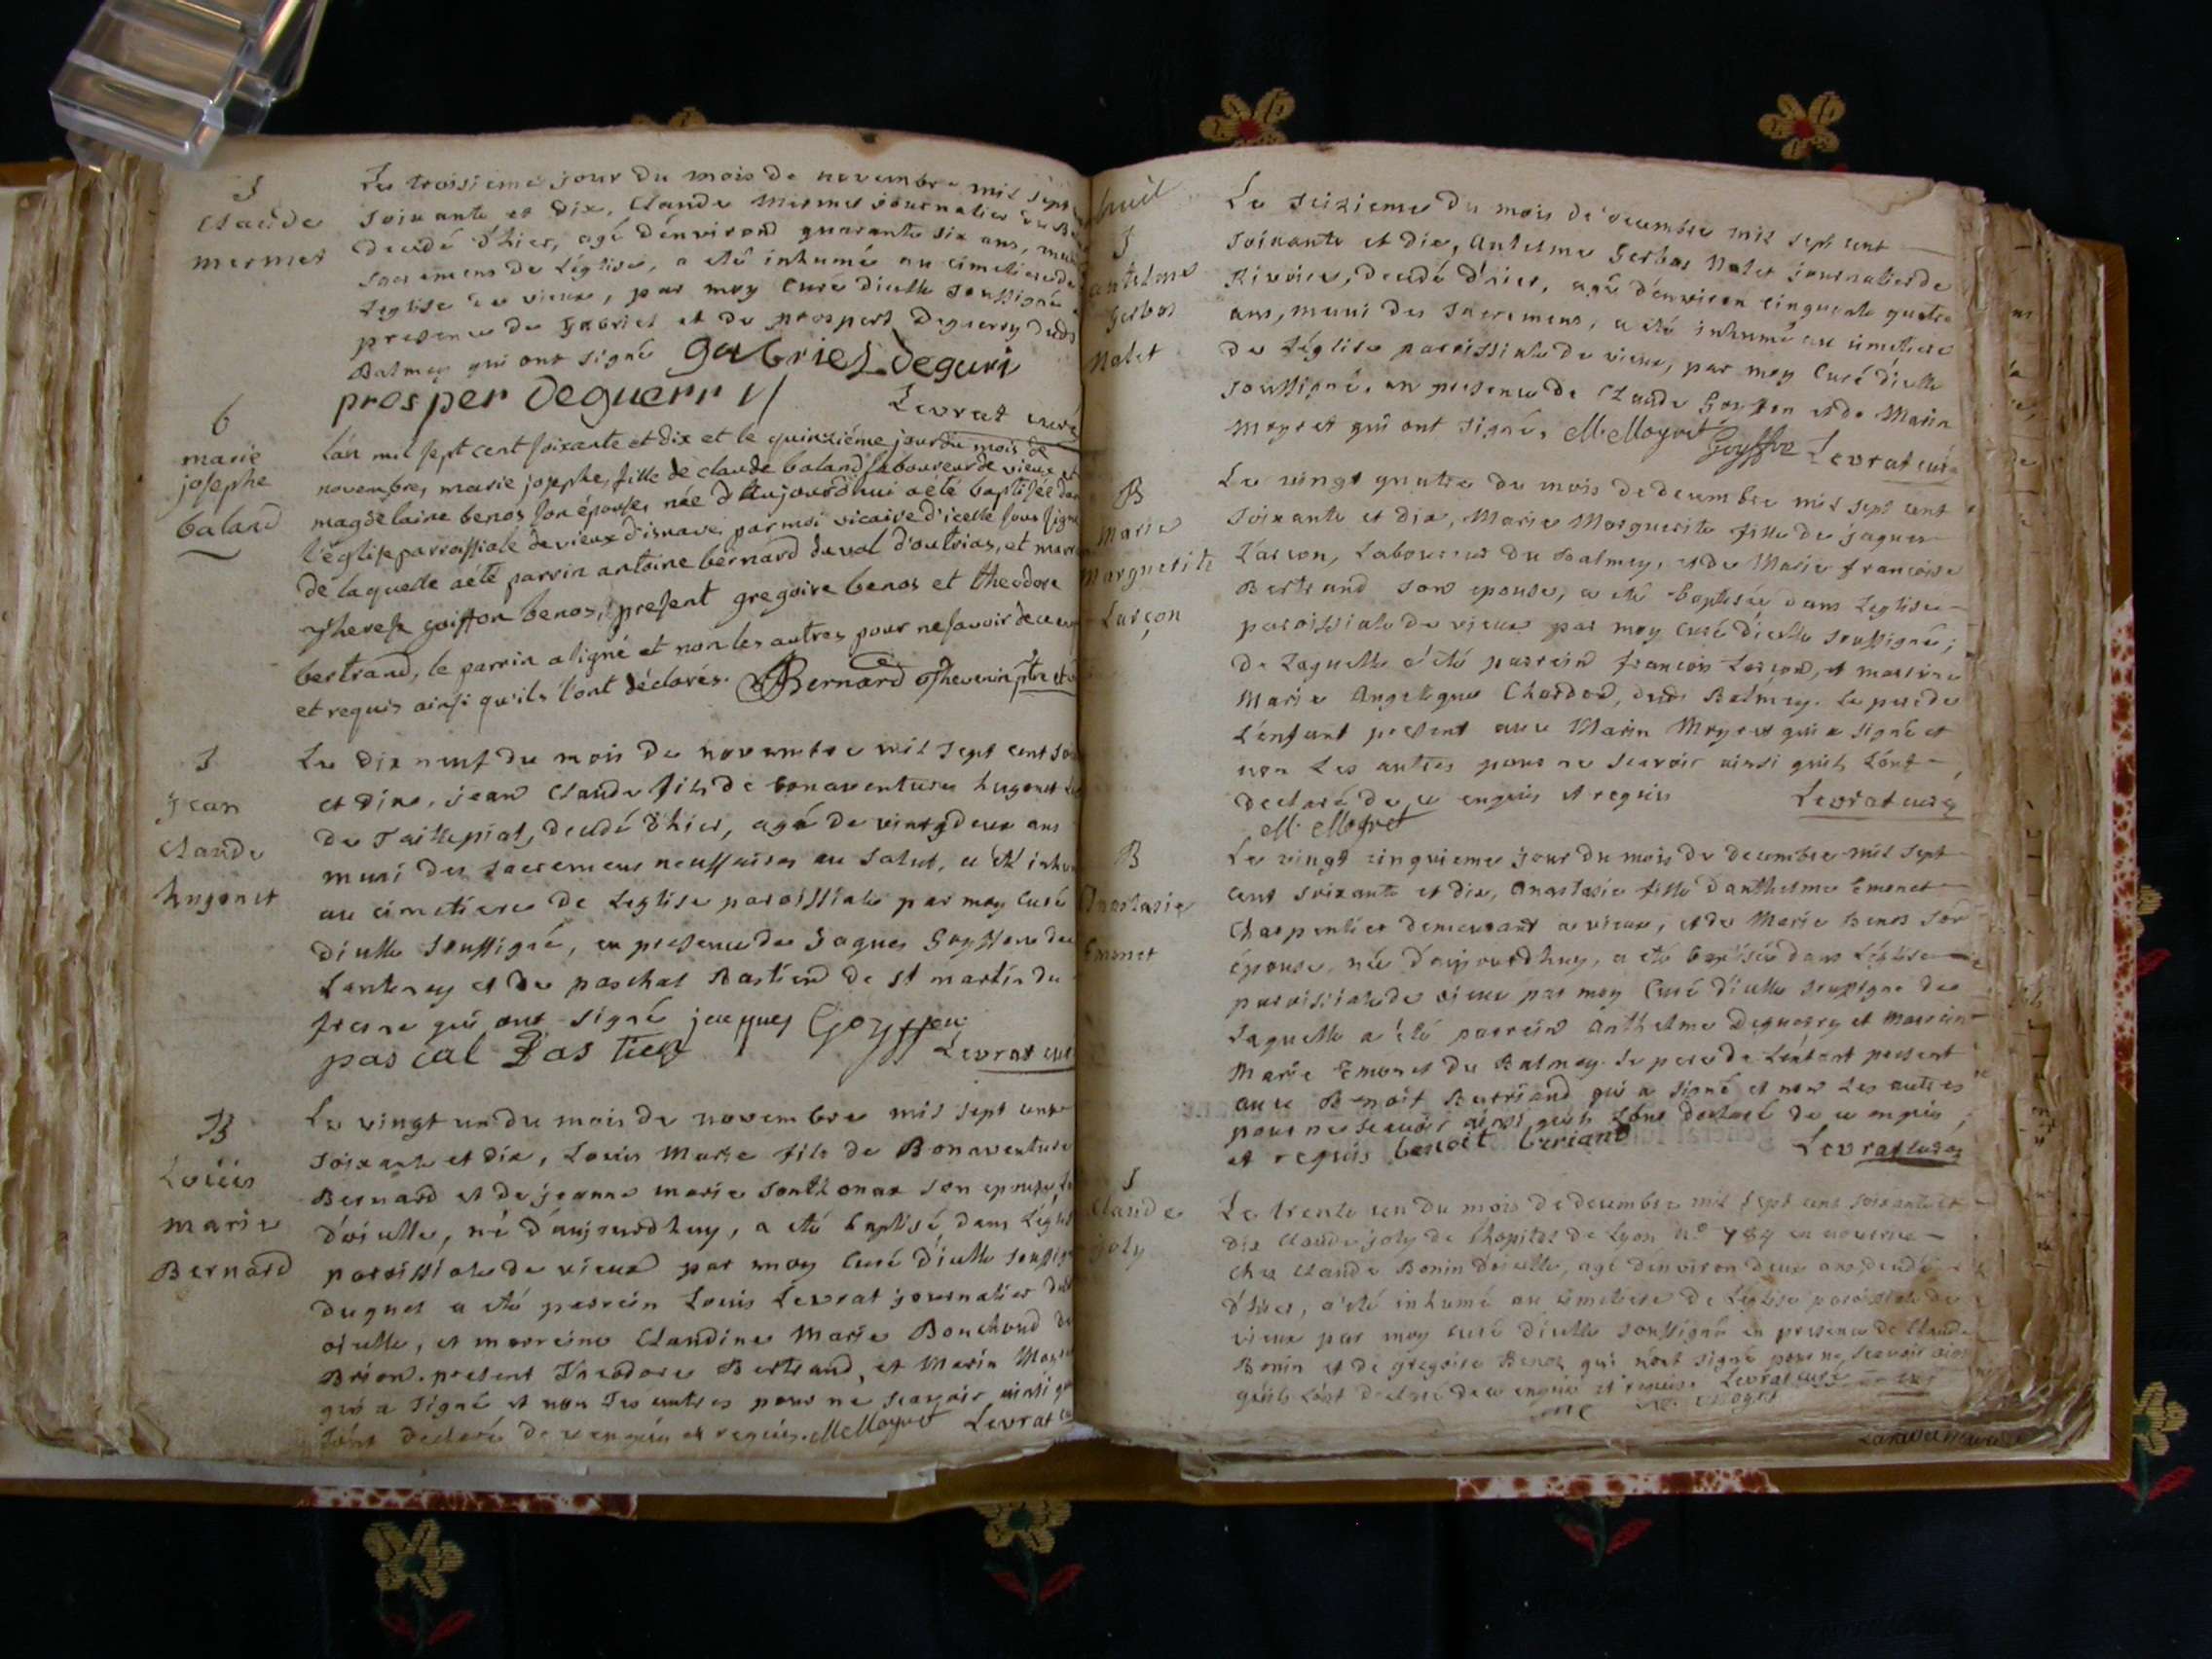 J
Claude
mermet
Le troisieme jour du mois de novembre mil sept
soixante et dix, Claude mermet journalier du
decedé d'hier, agé d'environ quarante six ans, muni
sacremens de L'église, a eté inhumé au cimetiere de
Leglise de vieux, par moy Curé d'icelle soussigné
presence de gabriel et de prospert Deguerry dud
Balmey qui ont signé gabriel Deguri
prosper Deguerry
Levrat curé
b
marie
josephe
baland
l'an mil sept cent soixante et dix et le quinziéme jour du mois de
novembre, marie josephe, fille de claude baland laboureur de vieux et
magdelaine benos son épouse, née d'Aujourd'hui aété baptisée dans
l'église parroissiale de vieux d'isnave par moi vicaire d'icelle sous signé
de laquelle aété parrin antoine bernard du val d'outrias, et marr
Therese goiffon benos, present gregoire benos et theodore
bertrand, le parrin a signé et non les autres pour ne savoir de ce en
et requis ainsi qu'ils l'ont déclarés. Bernard Thevenin ptre et
J
jean
Claude
hugonet
Le dix neuf du mois de novembre mil sept cent soi
et dixe, jean Claude fils de bonaventure hugonet
de Taillepiat, decedé d'hier, agé de vingt deux ans
muni des sacremens necessaires au salut, a eté inhu
au cimetiere de Leglise paroissiale par moy Curé
d'icelle soussigné, en presence de jaques Goyffon de
Lantenay et de paschal Bastien de st martin du
fresne qui ont signé jacques Goyffon
pascal Bastien
Levrat cur
B
Louis
marie
Bernard
Le vingt un du mois de novembre mil sept cent
soixante et dix, Louis Marie fils de Bonaventure
Bernard et de jeanne marie Sonthonax son epouse
d'oiselle, né d'aujourdhuy, a eté baptisé dans L'égli
paroissiale de vieux par moy Curé d'icelle soussig
duquel a eté parrein Louis Levrat journalier
oiselle, et marreine Claudine Marie Bonchoud de
Brion. present Theodore Bertrand, et Marin Moy
qui a signé et non Les autres pour ne scavoir ainsi
L'ont declaré de ce enquis et requis. M Moyret Levrat
J
antelme
Gerbos
Nalet
Le seizieme du mois de decembre mil sept cent
soixante et dix, antelme Gerbos Nalet journalier de
Rivoire, decedé d'hier, agé d'environ cinquante quatre
ans, muni des sacremens, a eté inhumé au cimetiere
de L'église paroissiale de vieux, par moy Curé d'icelle
soussigné, en presence de Claude Goyffon et de Marin
Moyret qui ont signé, M Moyret Goyffon Levrat curé
B
Marie
Marguerite
Larçon
Le vingt quatre du mois de decembre mil sept cent
soixante et dix, Marie Marguerite fille de jaques
Larçon, Laboureur du balmey, et de Marie françoise
Bertrand son epouse, a eté baptisée dans Leglise
paroissiale de vieux par moy curé d'icelle soussigné;
de Laquelle a eté parrein françois Larçon, et marreine
Marie Angelique Chardon, dudt Balmey. Le pere de
L'enfant present avec Marin Moyret qui a signé et
non Les autres pour ne scavoir ainsi qu'ils L'ont
declaré de ce enquis et requis Levrat curé
M Moyret
B
Anastasie
Emonet
Le vingt cinquieme jour du mois de decembre mil sept
cent soixante et dix, anastasie fille d'anthelme Emonet
charpentier demeurant a vieux, et de Marie Benos son
épouse, née d'aujourdhuy, a eté baptisée dans L'église
paroissiale de vieux par moy Curé d'icelle soussigné de
Laquelle a eté parrein anthelme Deguerry et marrein
Marie Emonet du Balmey. Le pere de L'enfant present
avec Benoit Bertrand qui a signé et non Les autres
pour ne scavoir ainsi qu'ils L'ont declaré de ce enquis
et requis benoit
Levrat curé
J
Claude
joly
Le trente un du mois de decembre mil sept cent soixante et
dix Claude joly de L'hopital de Lyon n° 784 en nourrice
chez Claude Bonin d'oiselle, agé d'environ deux ans, decedé
d'hier, a eté inhumé au cimetiere de L'église paroissiale de
vieux par moy curé d'icelle soussigné en presence de Claude
Bonin et de gregoire Benos qui n'ont signé pour ne scavoir ainsi
qu'ils L'ont declaré de ce enquis et requis. Levrat curé